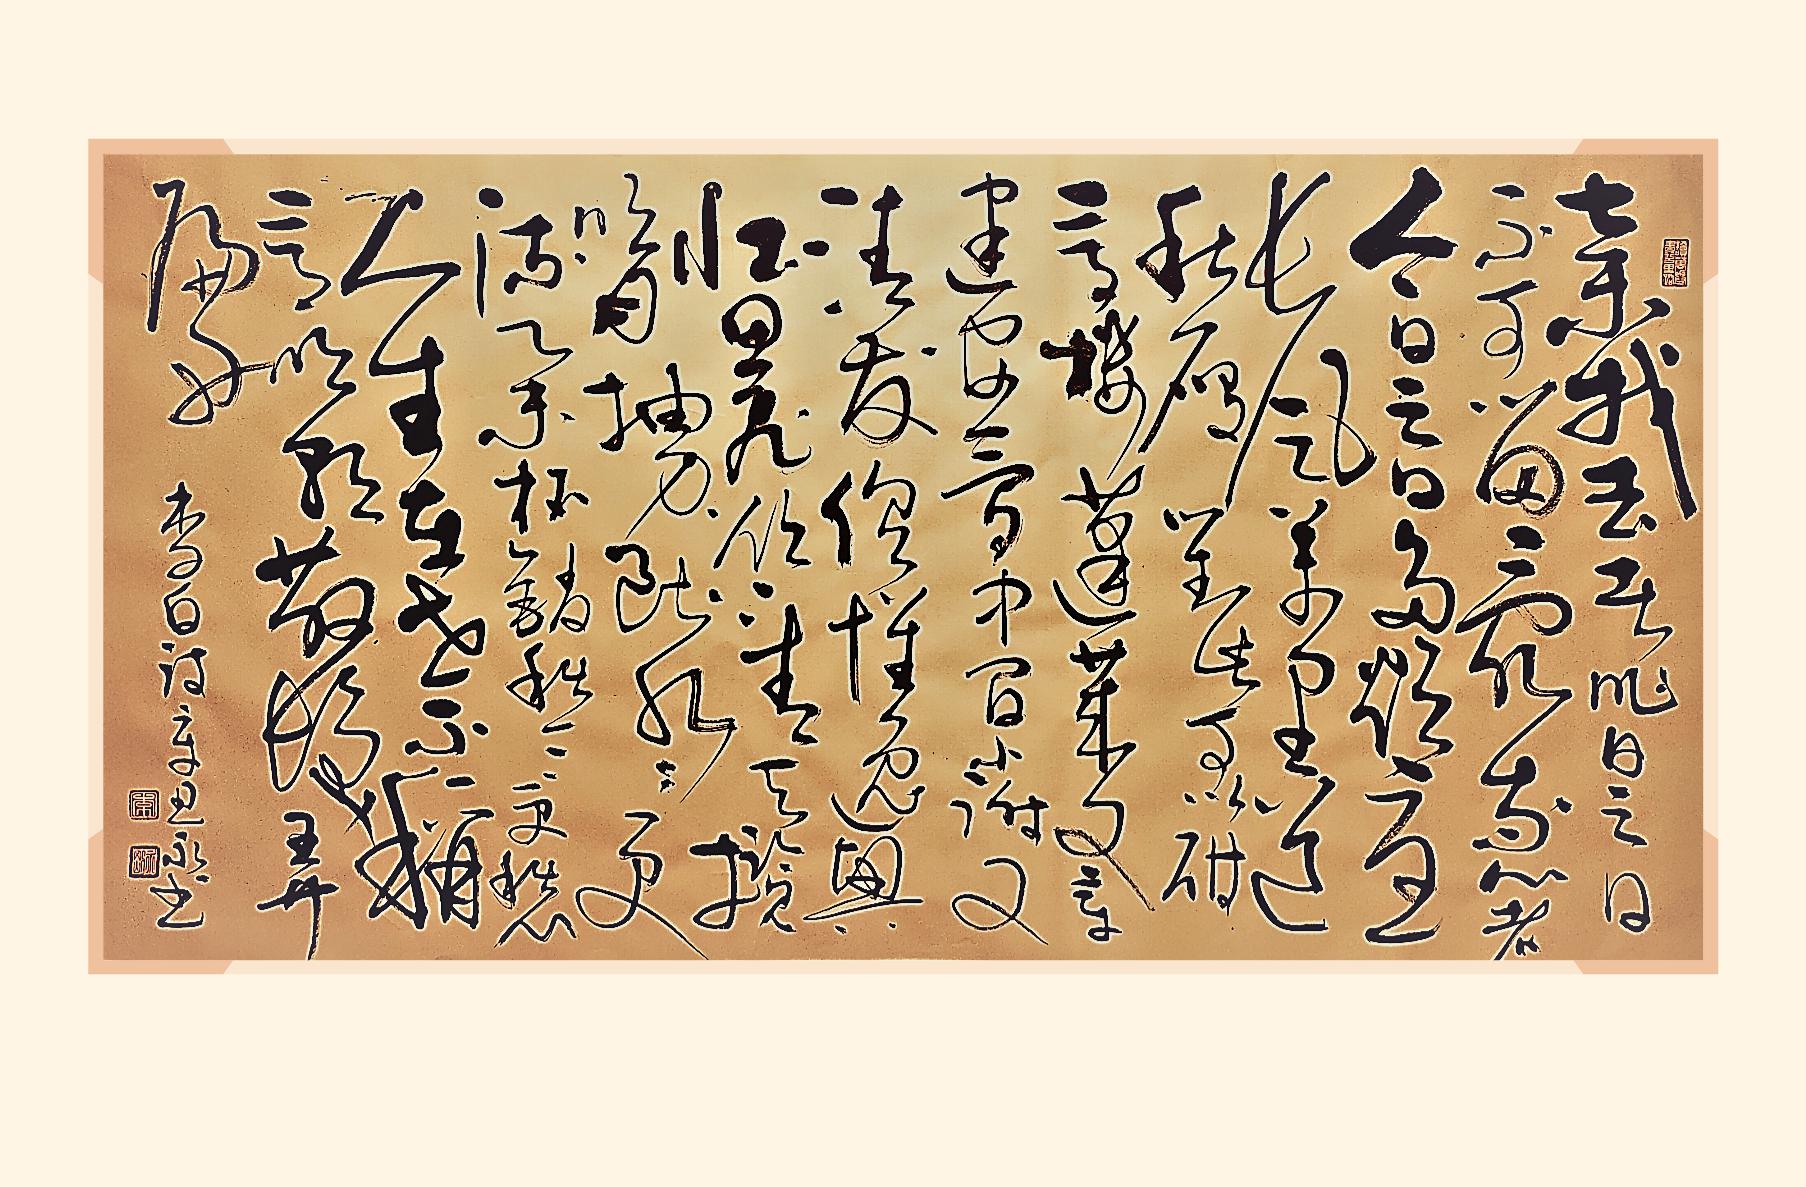 棄我去者昨日之日
不可留亂我心者
今日之日多煩憂
長風萬里送
秋雁對此可以酣
高樓蓬萊文章
建安骨中间小謝又
清发俱懷逸興
壮思飛欲上青天攬
明月抽刀断水水更
流舉杯銷愁愁更愁
人生在世不稱
意明朝散髮弄
扁舟
李白詩辛丑永书